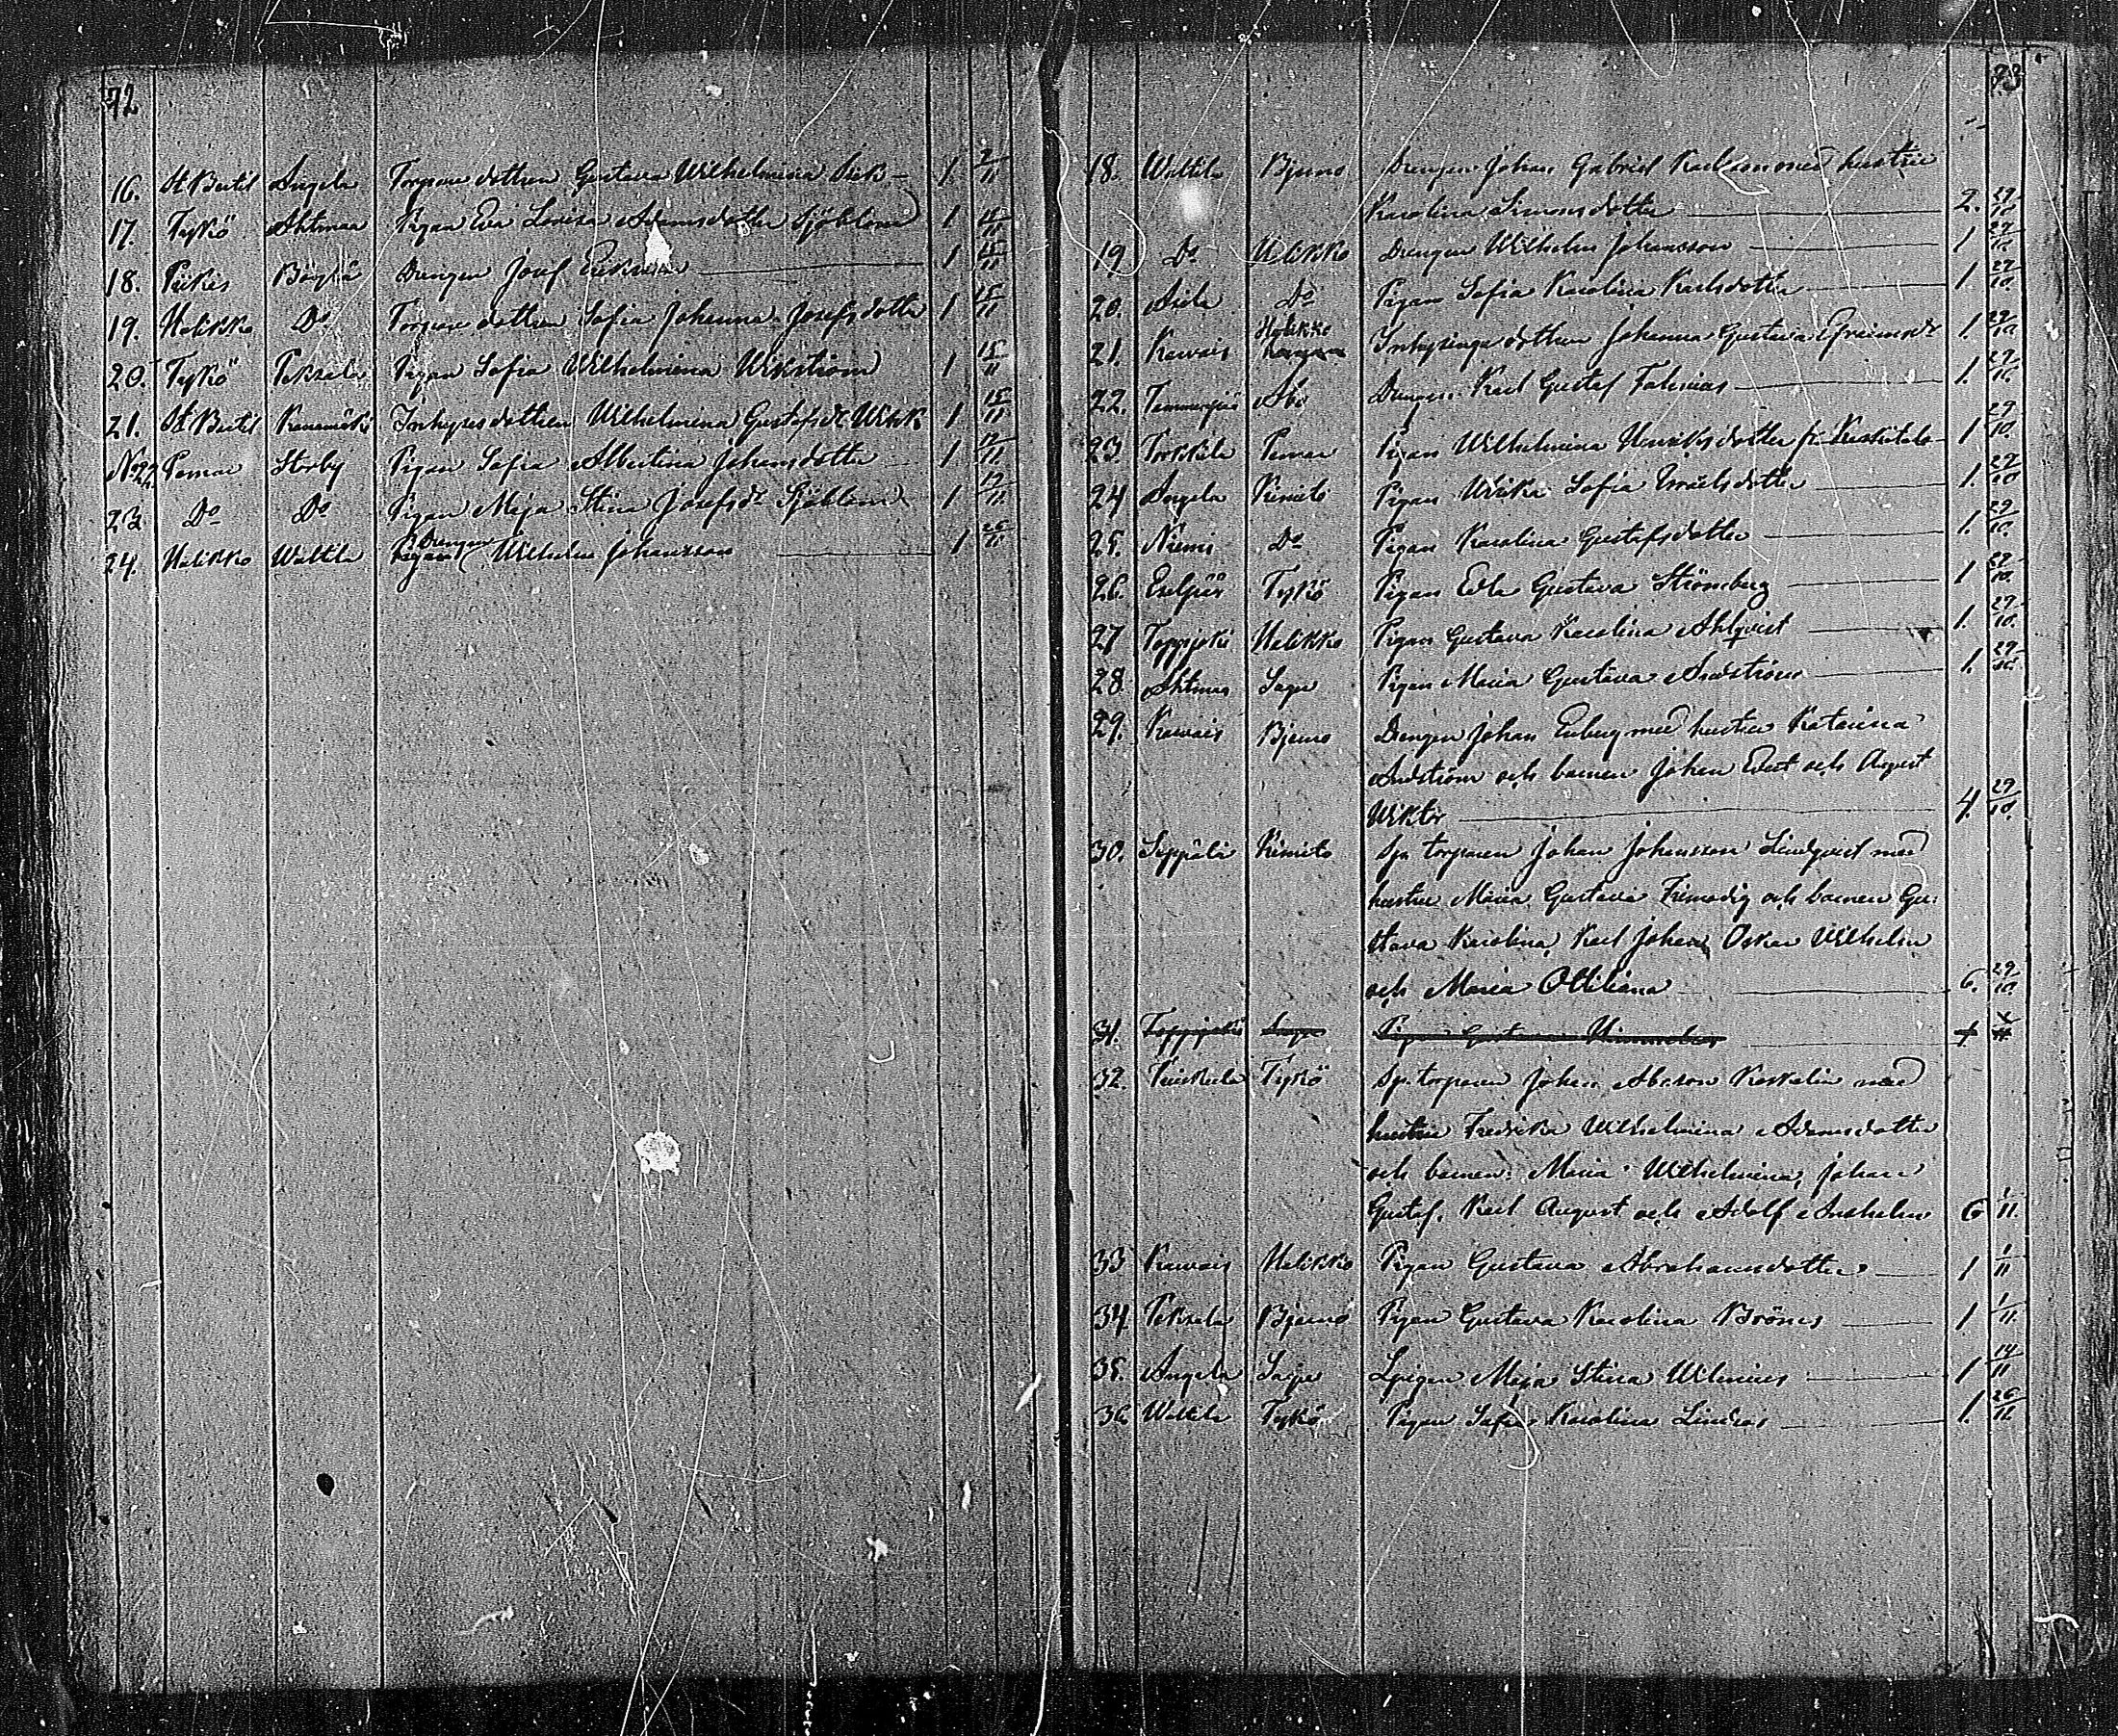 72
16. St Bertil Angela Torpare dottren Gustava Wilhelmina 1 2/11
17. Tykö Ahtmaa Pigan Eva Lovisa Adamsdotter Sjöblom 1 15/11
18. Piikis Drengen Josef Eriksson 1 15/11
19. Halikko Do Torpare dottren Sofia Johanna Josefsdotter 1 15/11
20. Tykö Peksala Pigan Sofia Wilhelmina Wikström 1 15/11
21. St Bertil Inhyses dottren Wilhelmina Gustafsdr 1 15/11
No 22. Pemar Storby Pigan Sofia Albertina Johansdotter 1 17/11
23. Do Do Pigan Maja Stina Josefsdr Sjöblom 1 17/11
24. Halikko Waltila Drengen Wilhelm Johansson 1 26/11
73
18. Waltila Bjerno Drengen Johan Gabriel Karlsson med hustru
Karolina Simonsdotter 2. 29/10
19 Do Halikko Drengen Wilhelm Johansson 1 29/10
20. Do Pigan Sofia Karolina Karlsdotter 1. 29/10
21. Kavais Halikko Inhysinge dottren Johanna Gustava Efraimsdr 1. 29/10
22. Åbo Drengen Karl Gustaf Falenius 1. 29/10
23. Torkkila Pemar Pigan Wilhelmina Henriksdotter fr. 1 29/10
24 Angela Kimito Pigan Ulrika Sofia Israelsdotter 1. 29/10
25. Niemis Do Pigan Karolina Gustafsdotter 1. 29/10
26. Tykö Pigan Edla Gustava Strömberg 1 29/10
27 Toppjoki Halikko Pigan Gustava Karolina Ahlqvist 1. 29/10
28. Ahtmaa Sagu Pigan Maria Gustava Sundström 1. 29/10
29. Kavais Bjerno Drengen Johan Enberg med hustru Katarina
Sundström och barnen Johan Evert och August
Wiktor 4. 29/10
30. Seppälä Kimito Sp. torparen Johan Johansson Lindqvist med
hustru Maria Gustava Frimodig och barnen Gu-
stava Karolina, Karl Johan, Oskar Wilhelm
och Maria Ottiliana 6. 29/10
31. Toppjoki Pigan Gustava 1.
32. Tykö Sp. torparen Johan Abrson Keskelin med
hustru Fredrika Wilhelmina Adamsdotter
och barnen: Maria Wilhelmina, Johan
Gustaf, Karl August och Adolf Anshelm 6 1/11.
33 Kavais Halikko Pigan Gustava Abrahamsdotter 1 1/11
34. Peksala Bjerno Pigan Gustava Karolina Bröms 1. 1/11.
35. Angela Maja Stina Wilenius 1 14/11
36. Waltila Tykö Pigan Sofia Karolina Lindros 1. 26/11.